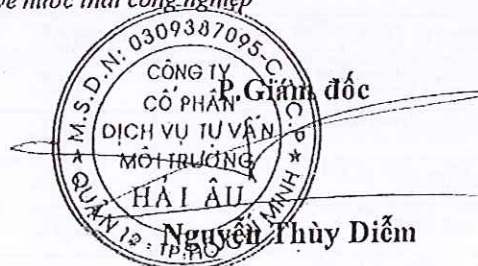 về nước thải công nghiệp
M.S.D.N: 0309387095-C.T.C.P
CÔNG TY
CỔ PHẦN
DỊCH VỤ TƯ VẤN
MÔI TRƯỜNG
HẢI ÂU
QUẬN 12 - TP.HỒ MINH
P.Giám đốc
Nguyễn Thùy Diễm